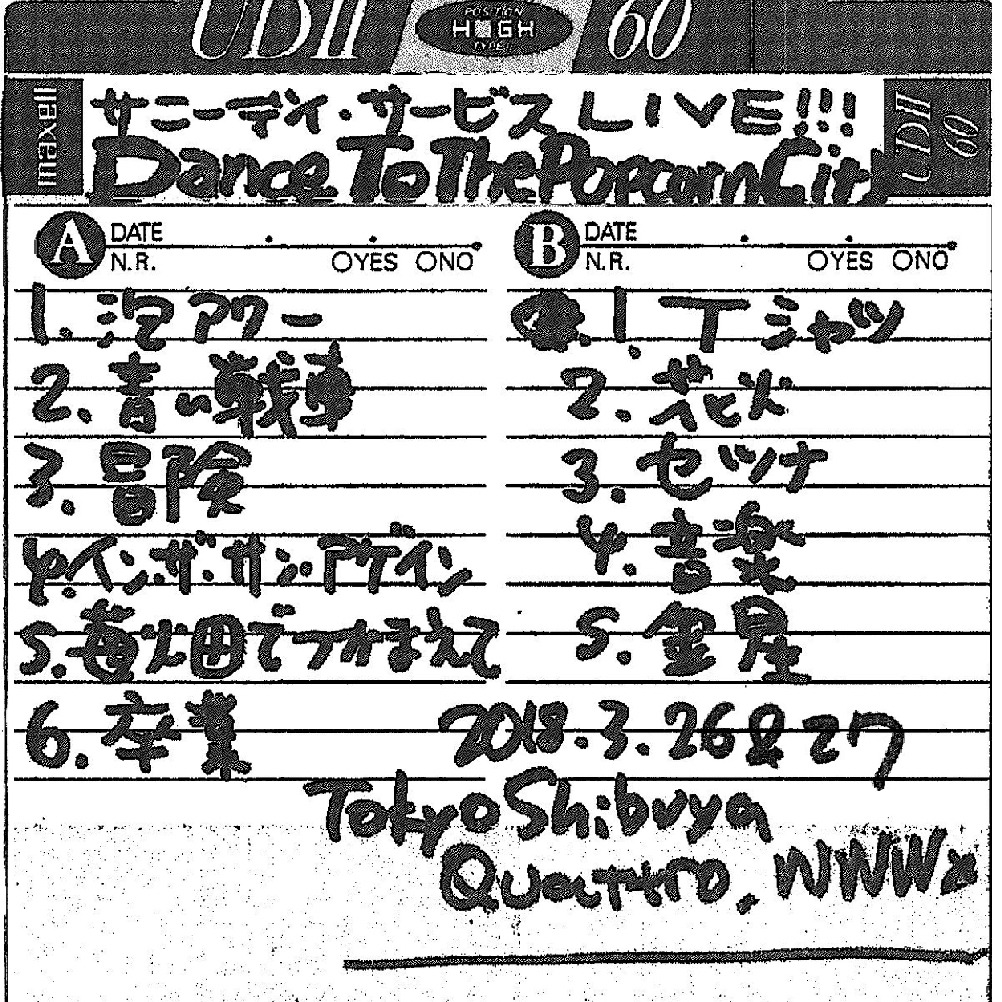 UDII POSITION HIGH TYPE II 60
maxell
サニーデイ・サービス LIVE!!!
Dance To The Popcorn City
UDII 60
A DATE
N.R. YES NO
1. 泡アワー
2. 青い戦車
3. 冒険
4. イン・ザ・サン・アゲイン
5. 苺畑でつかまえて
6. 卒業
B DATE
N.R. YES NO
1. Tシャツ
2. 花火
3. セツナ
4. 音楽
5. 金星
2018.3.26&27
Tokyo Shibuya
Quattro, WWWx